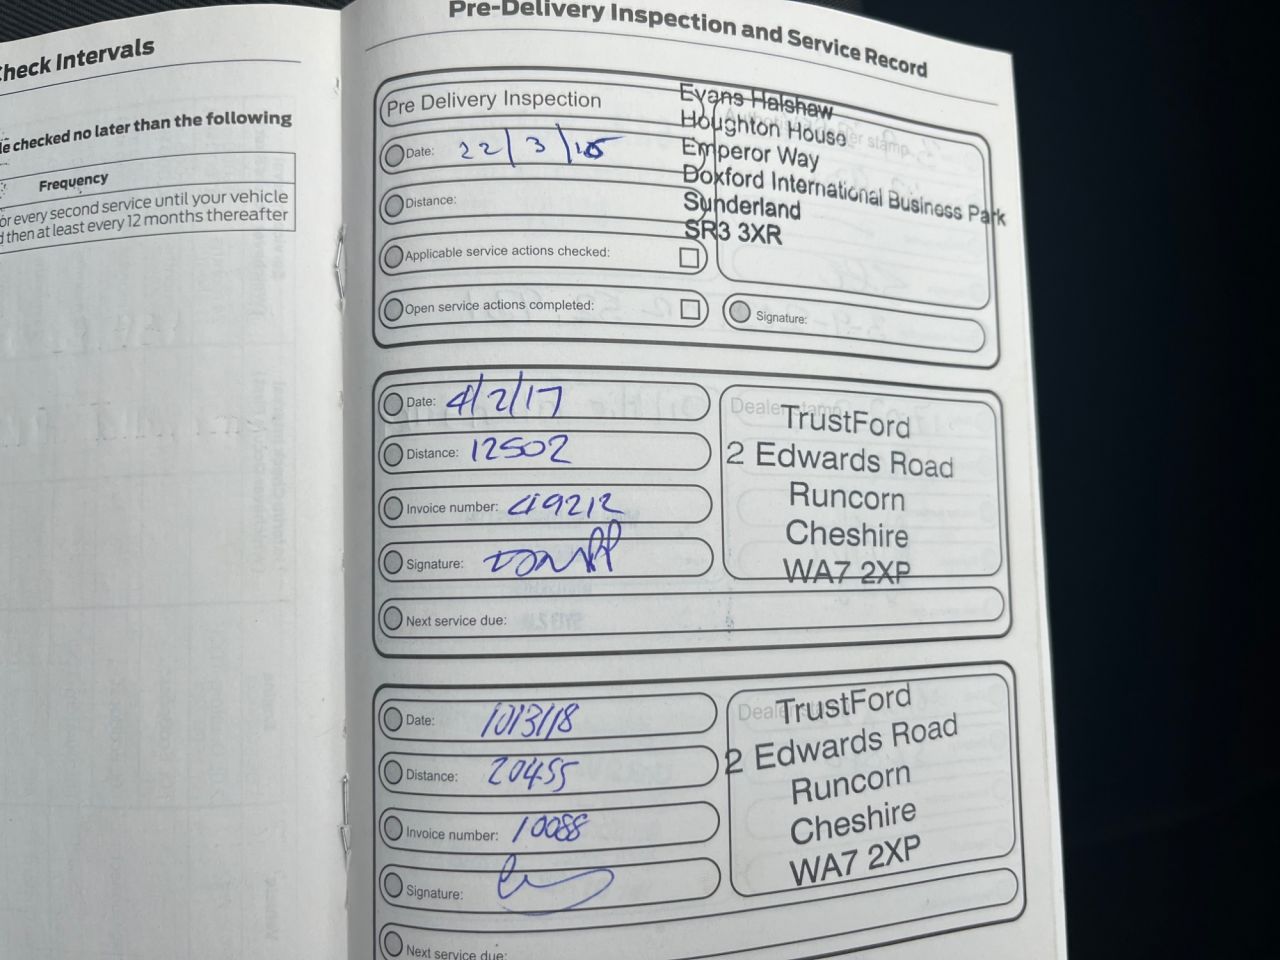 Check Intervals
le checked no later than the following
Frequency
or every second service until your vehicle
d then at least every 12 months thereafter
Pre-Delivery Inspection and Service Record
Pre Delivery Inspection
Date: 22/3/16
Distance:
Applicable service actions checked:
Open service actions completed:
Evans Halshaw
Houghton House
Emperor Way
Doxford International Business Park
Sunderland
SR3 3XR
Signature:
Date: 4/2/17
Distance: 12502
Invoice number: 49212
Signature:
Next service due:
Dealer stamp
TrustFord
2 Edwards Road
Runcorn
Cheshire
WA7 2XP
Date: 10/3/18
Distance: 20455
Invoice number: 10088
Signature:
Next service due:
Dealer
TrustFord
2 Edwards Road
Runcorn
Cheshire
WA7 2XP